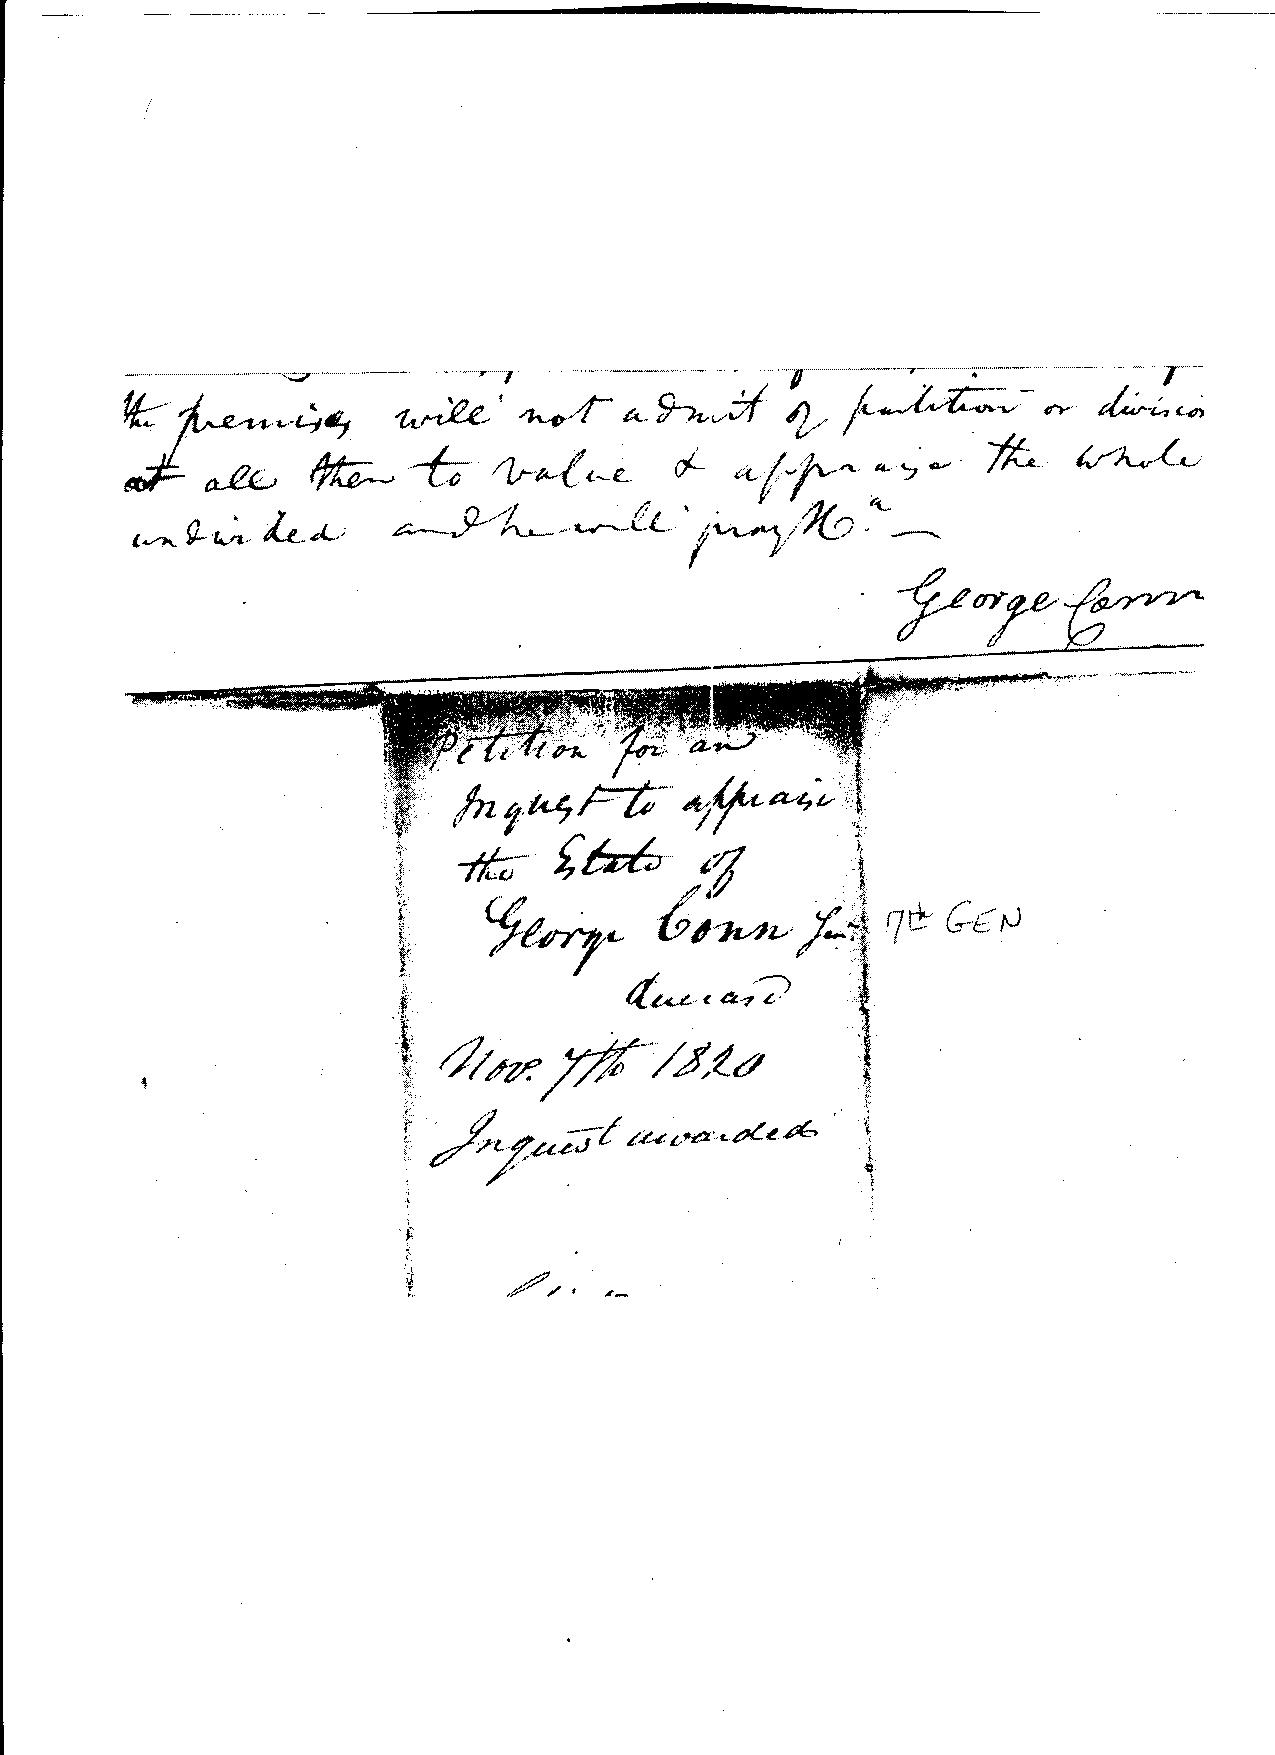 the premises will not admit of partition or division
at all then to value & appraise the whole
undivided and he will pray &c.
George Conn
Petition for an
Inquest to appraise
the Estate of
George Conn Senr. 7th GEN
deceasd
Nov. 7th 1820
Inquest awarded